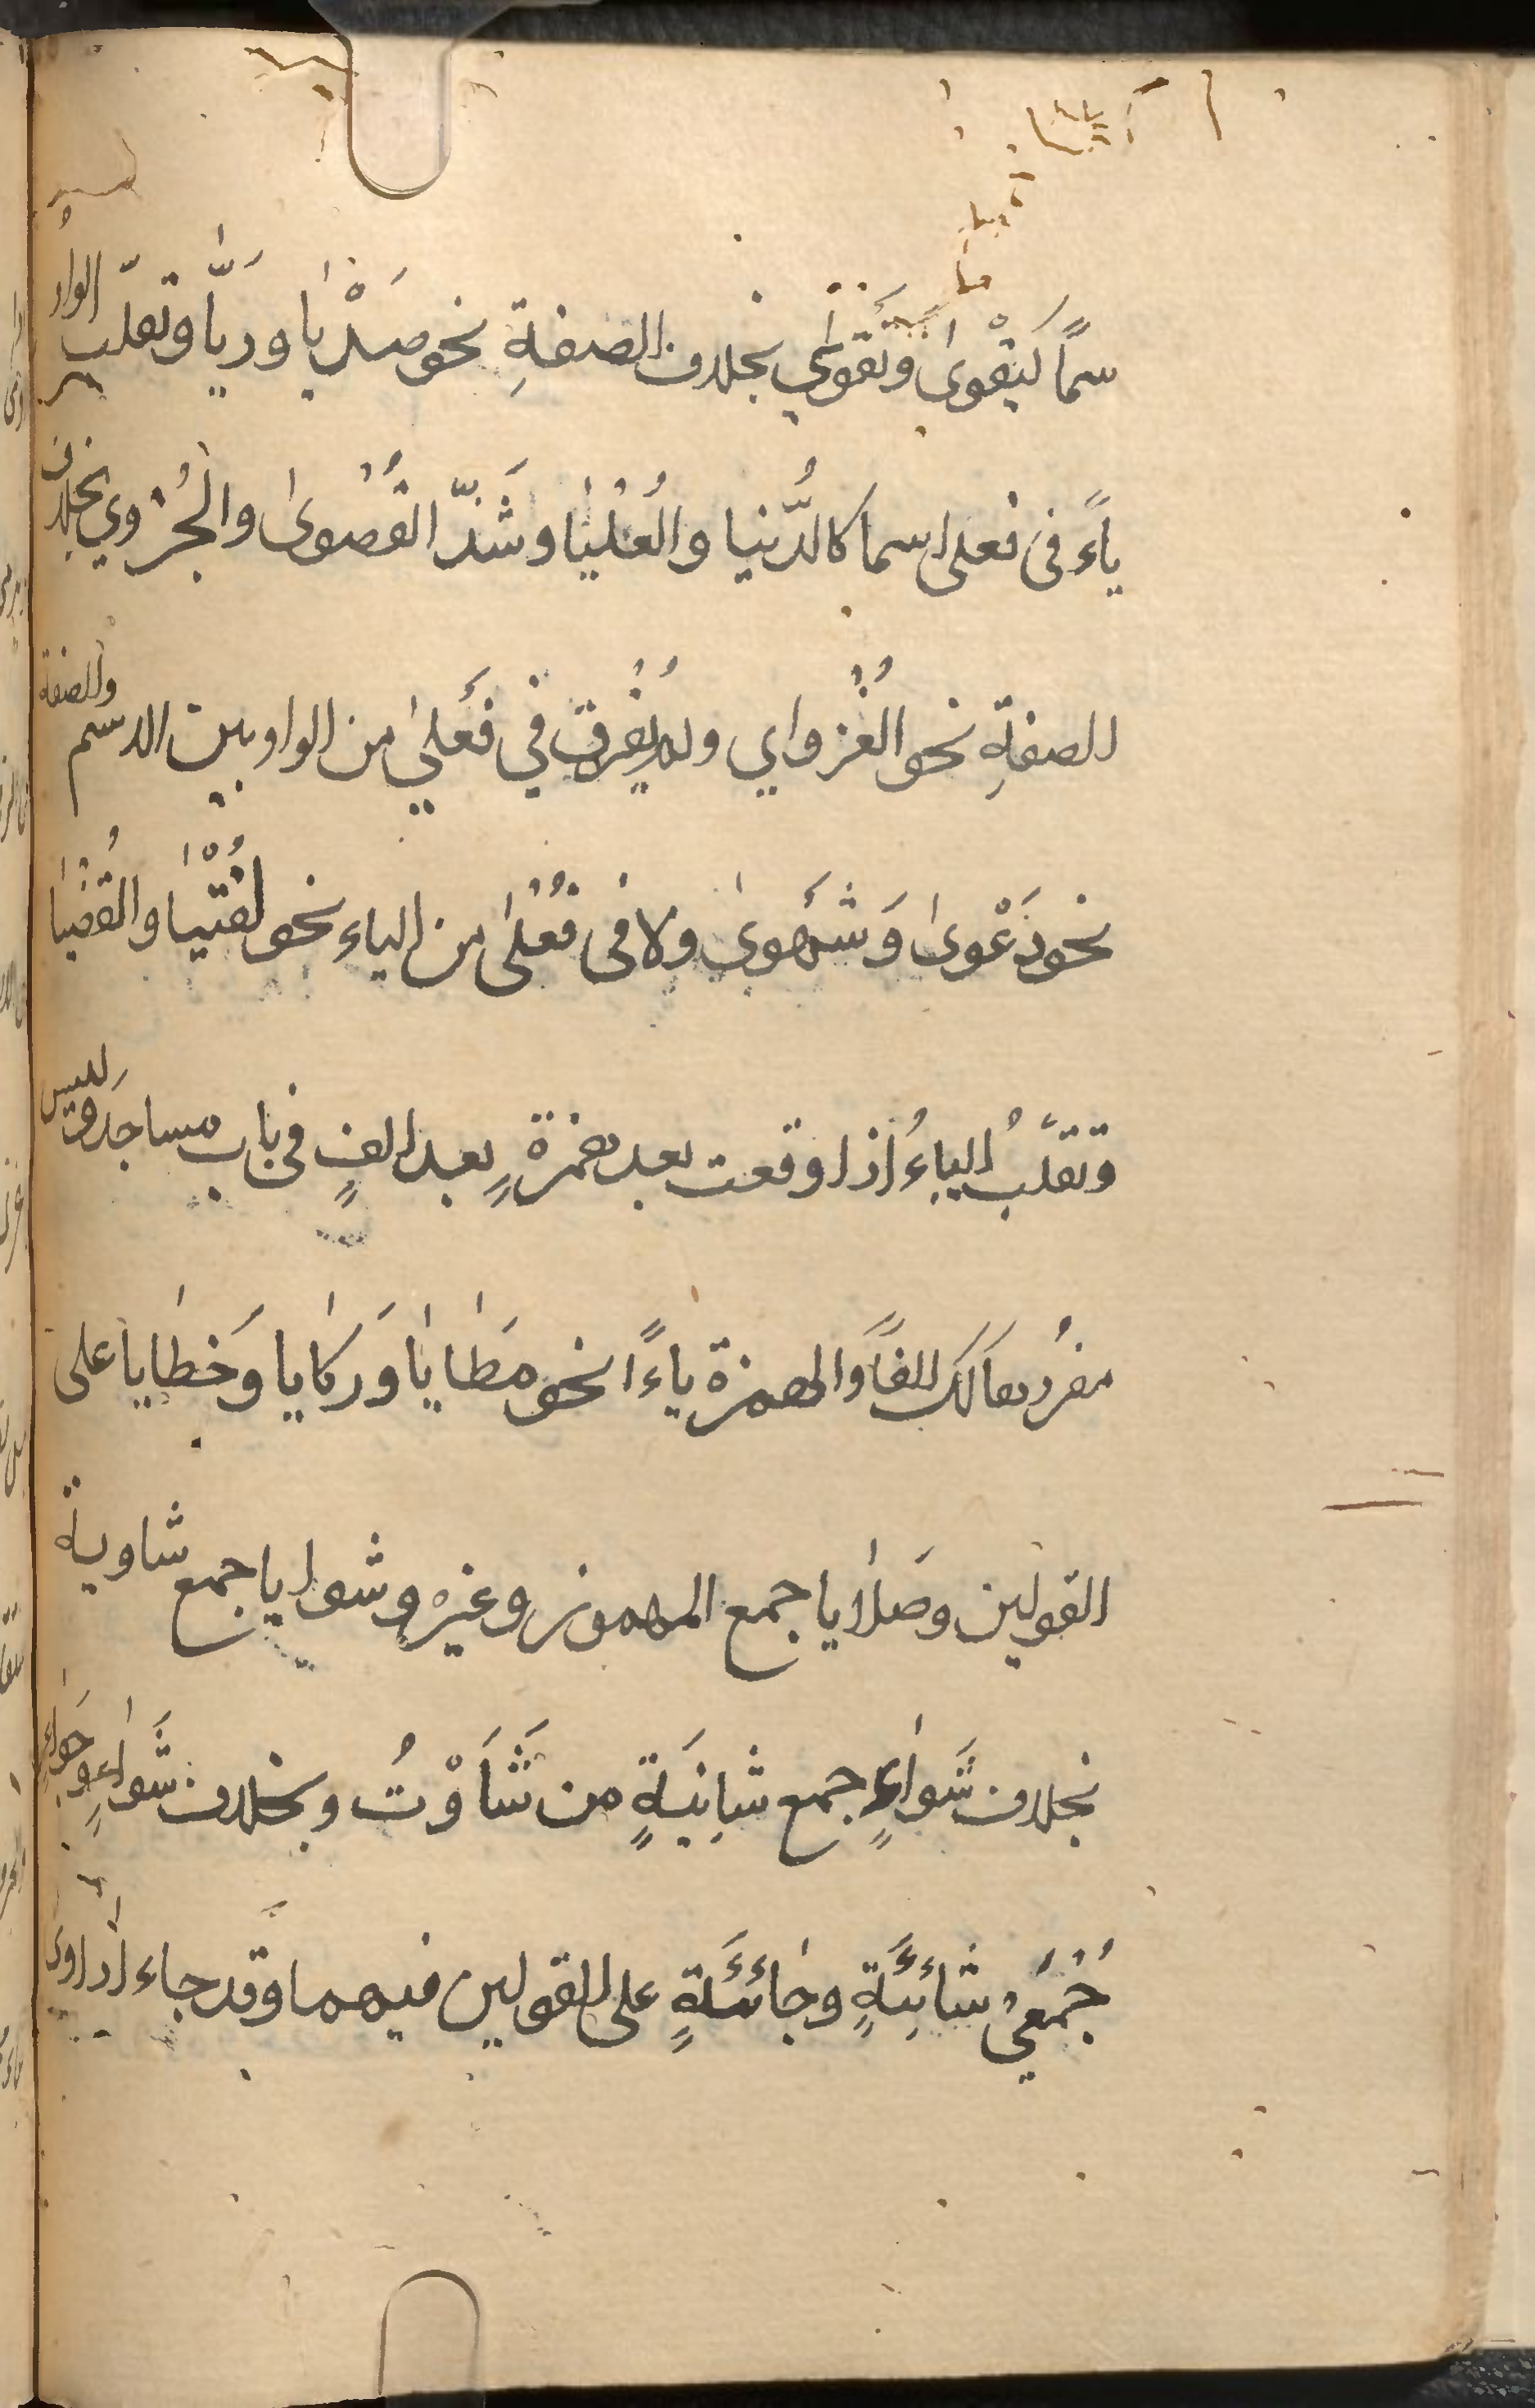 سمًا كبَقْوىٰ وتَقْوىٰ بخلاف الصفةِ نحو صَدْيٰا وريّٰا وتقلب الواو
ياءً فى فعلى اسما كالدُّنيا والعُلْيٰا وشَذّ القُصْوىٰ والحُزْوي بخلاف
الصفةِ نحو الغُزْواي ولم يُفْرق في فَعْلىٰ من الواو بين الاسم والصفة
نحو دَعْوىٰ وَشَهْوىٰ ولا فى فُعْلىٰ من الياء نحو الفُتْيٰا والقُضْيٰا
وتقلَبُ الياءُ اذا وقعت بعد همزةٍ بعد الفٍ فى باب مساجدَ وليس
مفرُدها كذلك الفًا وَالهمزة ياءً انحو مَطٰايٰا وَرَكٰايا وَخَطٰايا على
القولين وصَلٰايا جمع المهموز وغيره وشوايا جمع شاوية
بخلاف شَوٰاءٍ جمع شائِيَةٍ من شَأَوْتُ وبخلاف شَوٰاءٍ وجَوٰاءٍ
جُمْعَيْ شائِيَةٍ وجٰائَيَةٍ على القولين فيهما وقد جاء اَدٰاوى